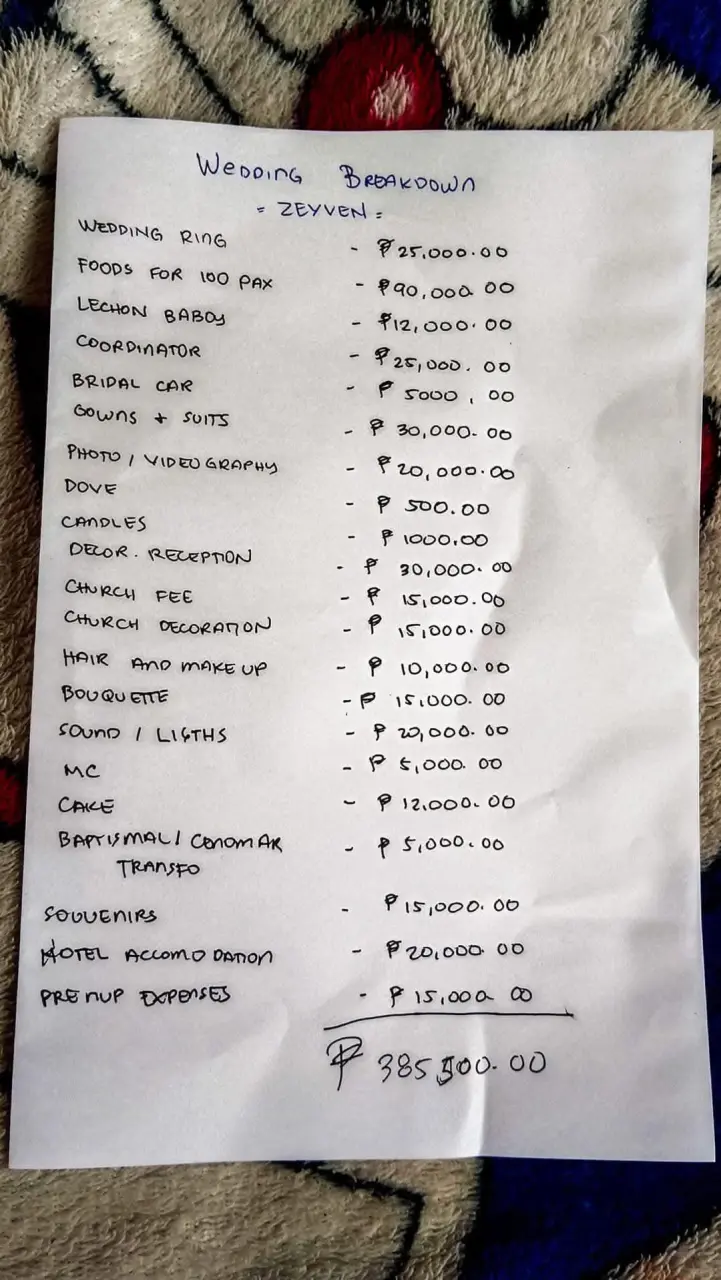 WEDDING BREAKDOWN
= ZEYVEN =
WEDDING RING - ₱25,000.00
FOODS FOR 100 PAX - ₱90,000.00
LECHON BABOY - ₱12,000.00
COORDINATOR - ₱25,000.00
BRIDAL CAR - ₱5000.00
GOWNS + SUITS - ₱30,000.00
PHOTO / VIDEOGRAPHY - ₱20,000.00
DOVE - ₱500.00
CANDLES - ₱1000.00
DECOR. RECEPTION - ₱30,000.00
CHURCH FEE - ₱15,000.00
CHURCH DECORATION - ₱15,000.00
HAIR AND MAKE UP - ₱10,000.00
BOUQUETTE - ₱15,000.00
SOUND / LIGTHS - ₱20,000.00
MC - ₱5,000.00
CAKE - ₱12,000.00
BAPTISMAL / CENOMAR - ₱5,000.00
TRANSFO
SOUVENIRS - ₱15,000.00
HOTEL ACCOMODATION - ₱20,000.00
PRENUP EXPENSES - ₱15,000.00
₱385,500.00